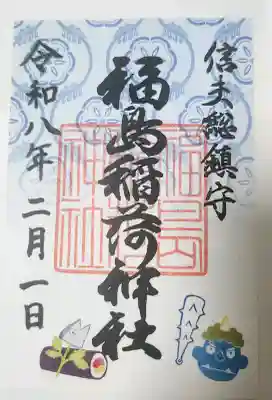 信夫総鎮守
福島稲荷神社
令和八年二月一日
福島稲荷神社